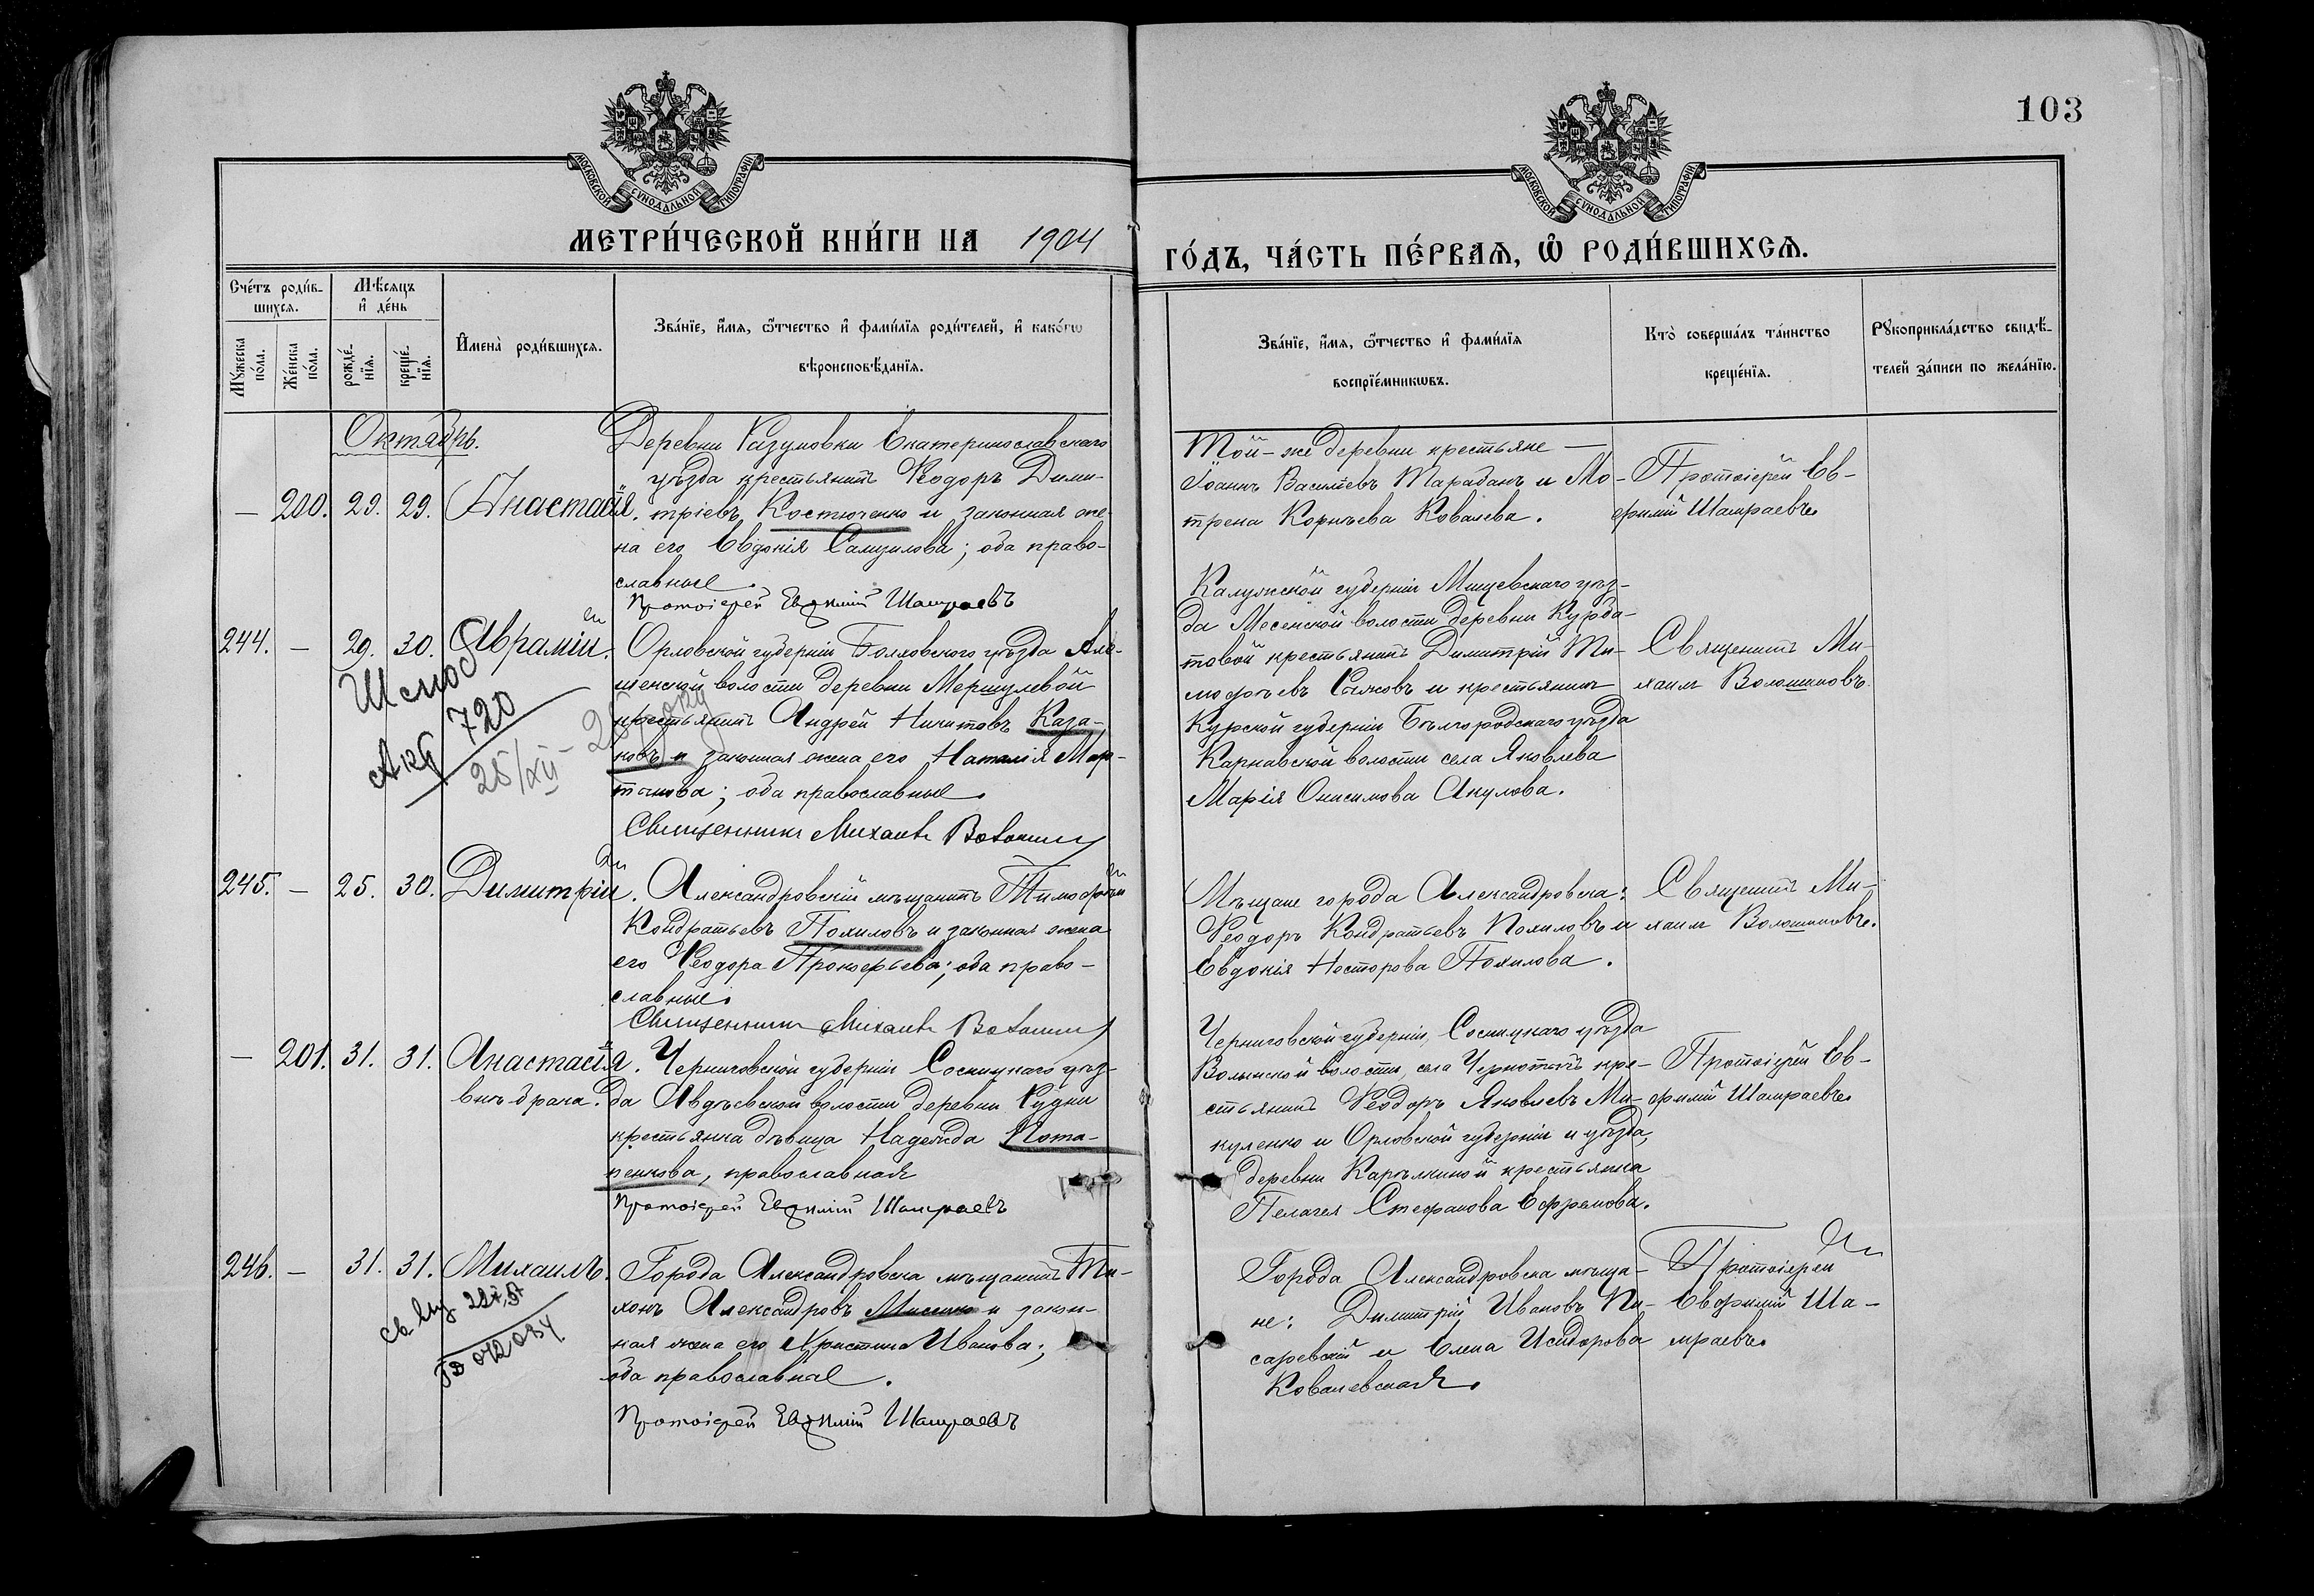 103
МОСКОВСКОЙ СѴНОДАЛЬНОЙ ТИПОГРАФІИ
МОСКОВСКОЙ СѴНОДАЛЬНОЙ ТИПОГРАФІИ
МЕТРИ́ЧЕСКОЙ КНИ́ГИ НА 1904
ГО́ДЪ, ЧА́СТЬ ПЕ́РВАѦ, Ѡ҆ РОДИ́ВШИХСѦ.
Сче́тъ роди́в-
шихсѧ.
Мꙋжеска по́ла.
Же́нска по́ла.
Мѣ́сѧцъ
и҆ де́нь
рожде́-
нїѧ.
креще́-
нїѧ.
И҆мена̀ роди́вшихсѧ.
Зва́нїе, и҆́мѧ, ѻ҆́тчество и҆ фами́лїѧ роди́телей, и҆ како́гѡ
вѣроисповѣ́данїѧ.
Зва́нїе, и҆́мѧ, ѻ҆́тчество и҆ фами́лїѧ
воспрїе́мникѡвъ.
Кто̀ соверша́лъ та́инство
креще́нїѧ.
Рꙋкоприкла́дство свидѣ́-
телей за́писи по жела́нїю.
Октябрь.
— 200. 29. 29. Анастасія.
Деревни Разумовки Екатеринославскаго
уѣзда крестьянинъ Ѳеодоръ Дими-
тріевъ Костюченко и законная же-
на его Евдокія Самуилова; оба право-
славные.
Протоіерей Евѳимій Шамраевъ
Той-же деревни крестьяне —
Іоаннъ Васильевъ Тарабанъ и Мо-
трена Корнѣева Ковалева.
Протоіерей Ев-
ѳимій Шамраевъ.
244. — 29. 30. Аврамій.
Акт 720
25/XII
Орловской губерніи Болховского уѣзда
шенской волости деревни Мершулевой
крестьянинъ Андрей Никитовъ Каза-
ковъ и законная жена его Наталія Мар-
тынова; оба православные.
Священникъ Михаилъ
Калужской губерніи Мищевскаго уѣз-
да Месенской волости деревни Курба-
товой крестьянинъ Димитрій Ти-
моѳеевъ Сычковъ и крестьянка
Курской губерніи Бѣлгородскаго уѣзда
волости села Яковлева
Марія Онисимова Акулова.
Священникъ Ми-
хаилъ Волошиновъ.
245. — 25. 30. Димитрій.
Александровскій мѣщанинъ Тимоѳей
Кондратьевъ Похиловъ и законная жена
его Ѳеодора Прокофьева; оба право-
славные.
Священникъ Михаилъ
Мѣщане города Александровска:
Ѳеодоръ Кондратьевъ Похиловъ и
Евдокія Несторова Похилова.
Священникъ Ми-
хаилъ Волошиновъ.
— 201. 31. 31. Анастасія.
внѣ брака.
Черниговской губерніи Сосницкаго уѣз-
да Авдѣевской волости деревни Рудни
крестьянка дѣвица Надежда Пота-
пенкова, православная
Протоіерей Евѳимій Шамраевъ
Черниговской губерніи, Сосницкаго уѣзда
Волынской волости, села Чернотичъ кре-
стьянинъ Ѳеодоръ Яковлевъ Ми-
куленко и Орловской губерніи и уѣзда,
деревни Карѣлкиной крестьянка
Пелагея Стефанова Ефремова.
Протоіерей Ев-
ѳимій Шамраевъ.
246. — 31. 31. Михаилъ.
Города Александровска мѣщанинъ Ти-
хонъ Александровъ Мисенко и закон-
ная жена его Христина Иванова;
оба православные.
Протоіерей Евѳимій Шамраевъ
Города Александровска мѣща-
не: Димитрій Ивановъ Пи-
саревскій и Елена Исидорова
Ковалевская.
Протоіерей
Евѳимій Ша-
мраевъ.